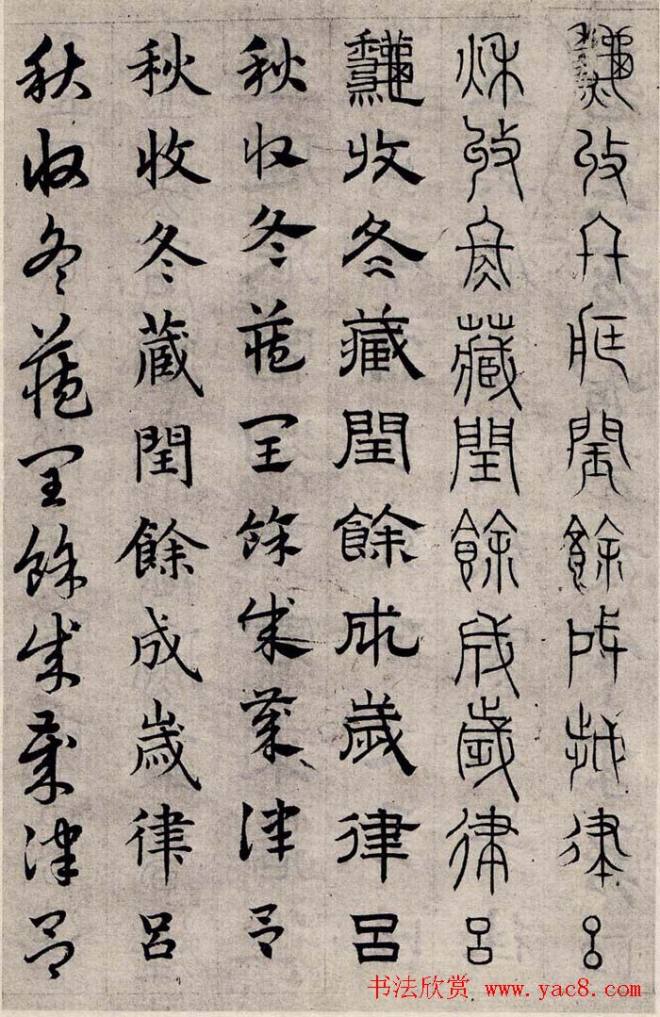 龝收冬藏閏餘成歲律呂
秌收冬藏閏餘成歲律呂
龝收冬藏閏餘成歲律呂
秋收冬藏閏餘成歲律呂
秋收冬藏閏餘成歲律呂
秋收冬藏閏餘成歲律呂
书法欣赏 www.yac8.com